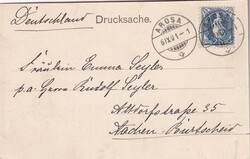 Deutschland
Drucksache.
AROSA
Fräulein Emma Seyler
p.a. Herrn Rudolf Seyler
Altdorfstraße 35
Aachen-Burtscheid